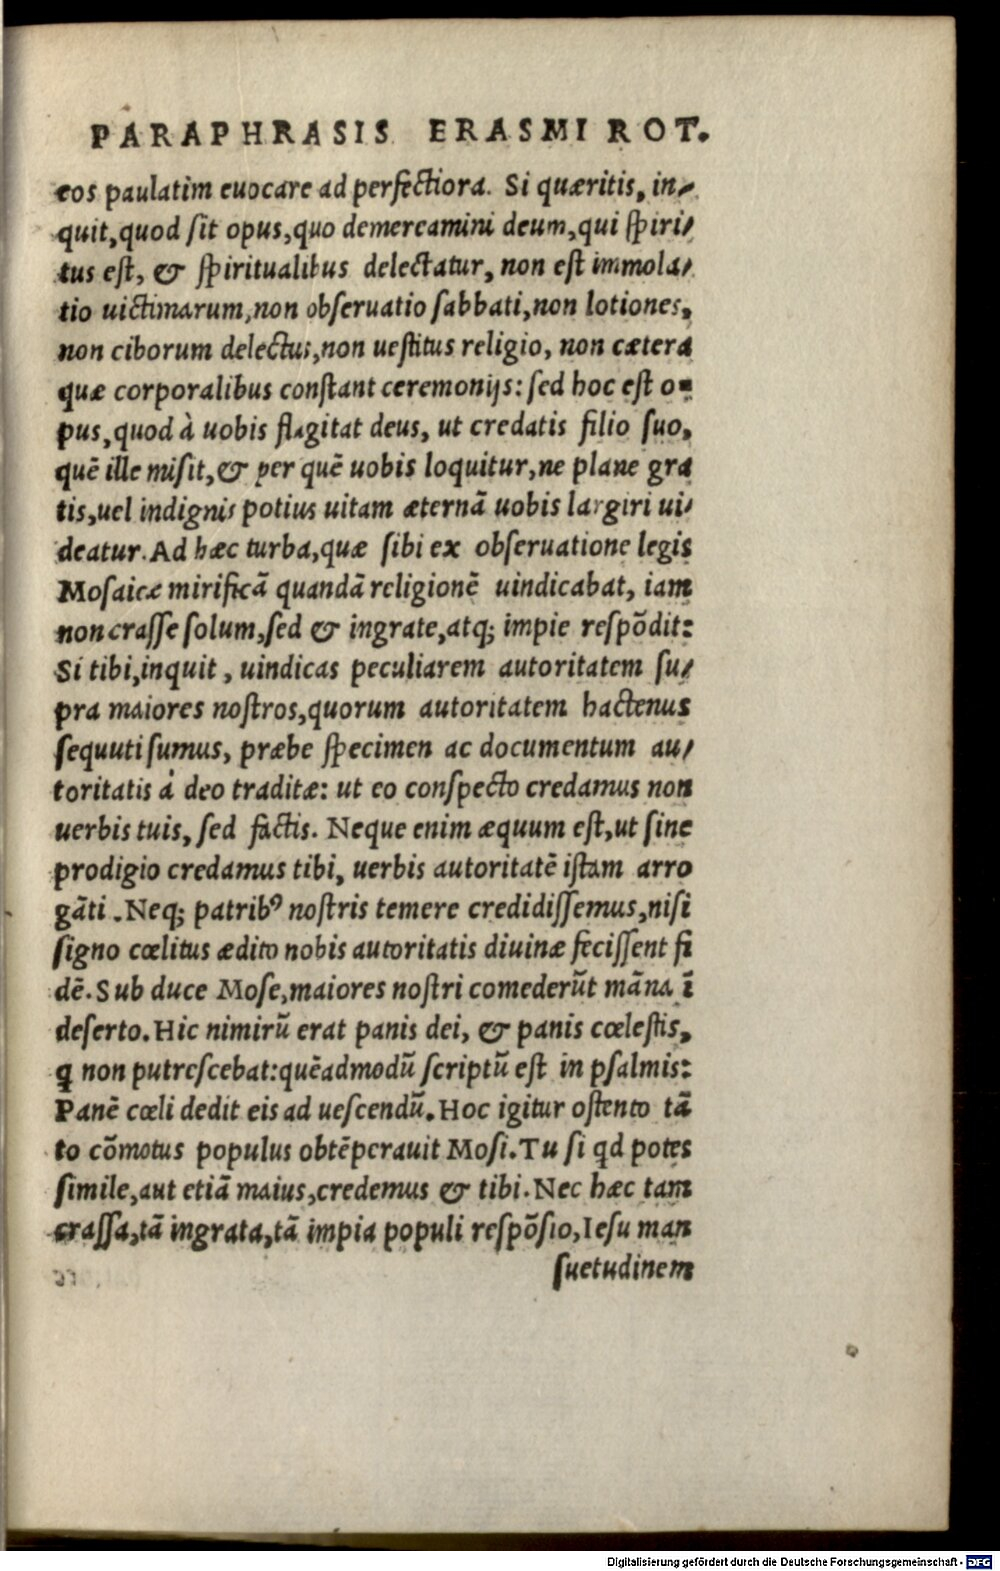 PARAPHRASIS ERASMI ROT.
eos paulatim euocare ad perfectiora. Si quæritis, in-
quit, quod ſit opus, quo demereamini deum, qui ſpiri-
tus eſt, & ſpiritualibus delectatur, non eſt immola-
tio uictimarum, non obſeruatio ſabbati, non lotiones,
non ciborum delectus, non ueſtitus religio, non cætera
quæ corporalibus conſtant ceremonijs: ſed hoc eſt o-
pus, quod à uobis flagitat deus, ut credatis filio ſuo,
quē ille miſit, & per quē uobis loquitur, ne plane gra
tis, uel indignis potius uitam æternā uobis largiri ui-
deatur. Ad hæc turba, quæ ſibi ex obſeruatione legis
Moſaicæ mirificā quandā religionē uindicabat, iam
non craſſe ſolum, ſed & ingrate, atq; impie reſpōdit:
Si tibi, inquit, uindicas peculiarem autoritatem ſu-
pra maiores noſtros, quorum autoritatem hactenus
ſequuti ſumus, præbe ſpecimen ac documentum au-
toritatis à deo traditæ: ut eo conſpecto credamus non
uerbis tuis, ſed factis. Neque enim æquum eſt, ut ſine
prodigio credamus tibi, uerbis autoritatē iſtam arro
gāti. Neq; patribꝰ noſtris temere credidiſſemus, niſi
ſigno cœlitus ædito nobis autoritatis diuinæ feciſſent fi
dē. Sub duce Moſe, maiores noſtri comederūt māna ī
deſerto. Hic nimirū erat panis dei, & panis cœleſtis,
q̄ non putreſcebat: quēadmodū ſcriptū eſt in pſalmis:
Panē cœli dedit eis ad ueſcendū. Hoc igitur oſtento tā
to cōmotus populus obtēperauit Moſi. Tu ſi qd potes
ſimile, aut etiā maius, credemus & tibi. Nec hæc tam
craſſa, tā ingrata, tā impia populi reſpōſio, Ieſu man
ſuetudinem
Digitalisierung gefördert durch die Deutsche Forschungsgemeinschaft - DFG